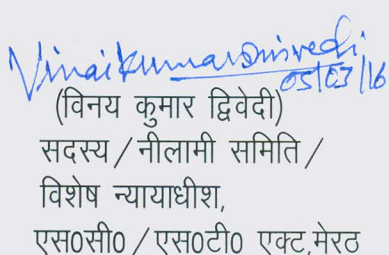 Vinaikumar Dwivedi
05/03/16
(विनय कुमार द्विवेदी)
सदस्य/नीलामी समिति/
विशेष न्यायाधीश,
एस0सी0/एस0टी0 एक्ट,मेरठ